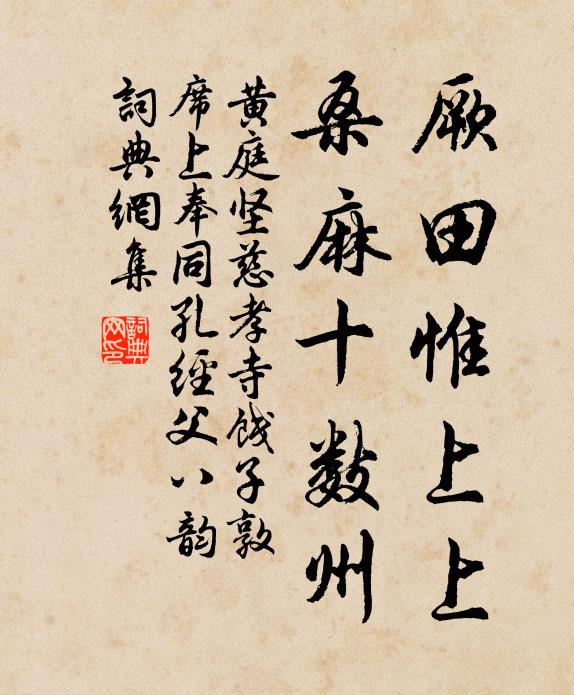 厥田惟上上
桑麻十数州
黄庭坚慈孝寺饯子敦
席上奉同孔经父八韵
詞典網集
詞典網印